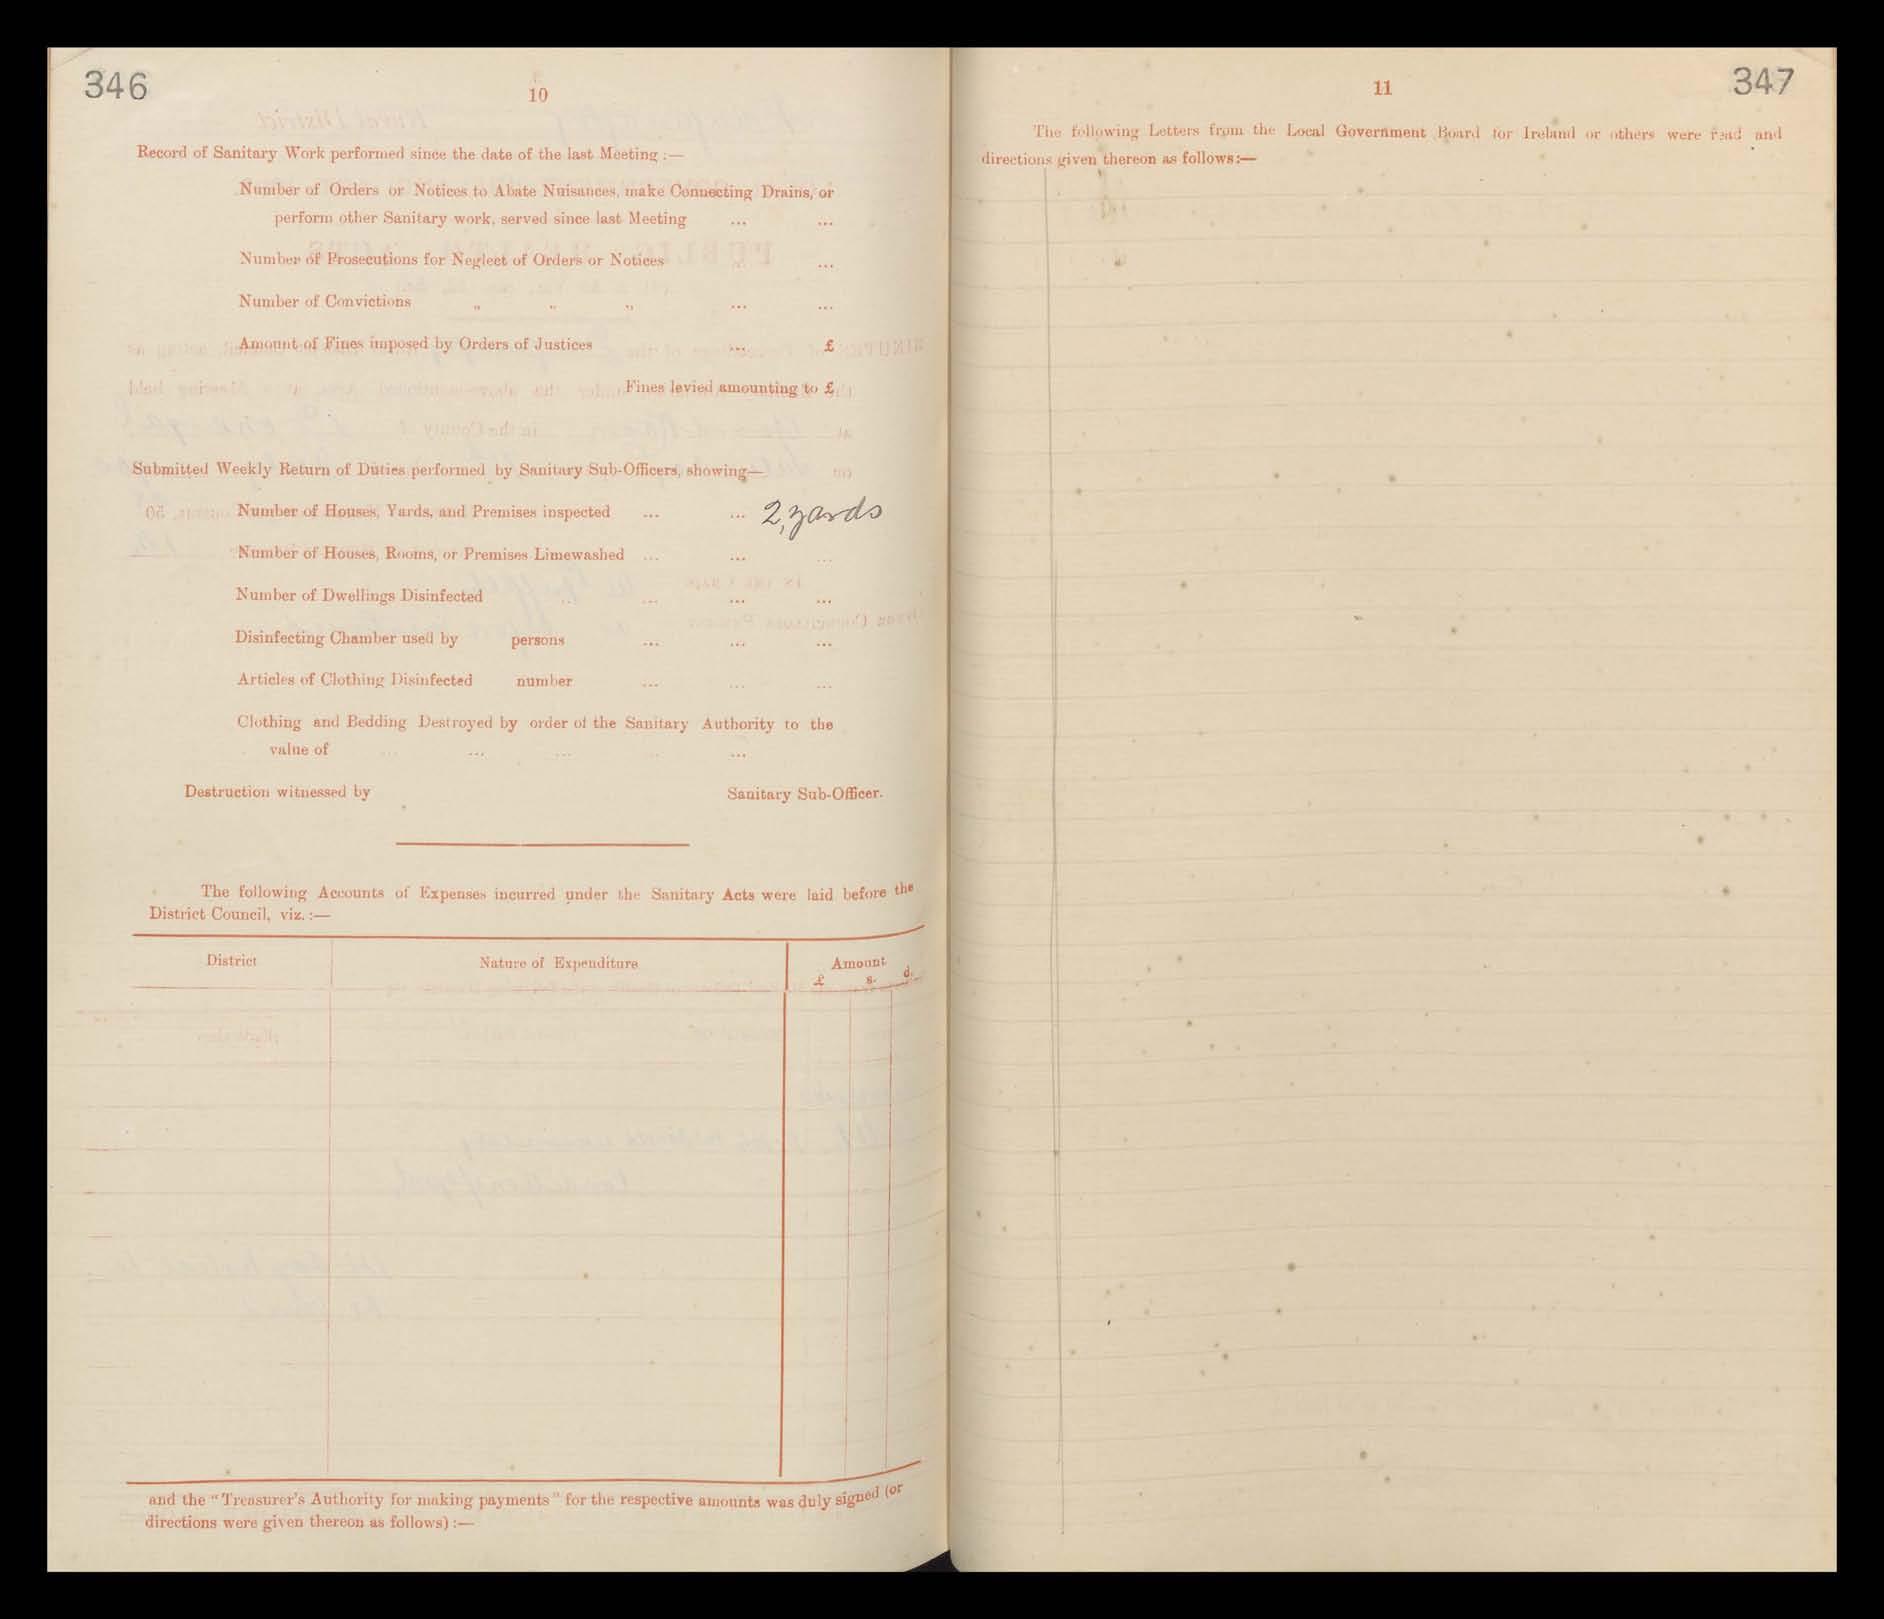 346
10
Record of Sanitary Work performed since the date of the last Meeting :—
Number of Orders or Notices to Abate Nuisances, make Connecting Drains, or
perform other Sanitary work, served since last Meeting ... ...
Number of Prosecutions for Neglect of Orders or Notices ...
Number of Convictions „ „ „ ... ...
Amount of Fines imposed by Orders of Justices ... £
Fines levied amounting to £
Submitted Weekly Return of Duties performed by Sanitary Sub-Officers, showing—
Number of Houses, Yards, and Premises inspected ... ... 2, yards
Number of Houses, Rooms, or Premises Limewashed ... ... ...
Number of Dwellings Disinfected ... ... ... ...
Disinfecting Chamber used by persons ... ... ...
Articles of Clothing Disinfected number ... ... ...
Clothing and Bedding Destroyed by order of the Sanitary Authority to the
value of ... ... ... ... ...
Destruction witnessed by Sanitary Sub-Officer.
The following Accounts of Expenses incurred under the Sanitary Acts were laid before the
District Council, viz. :—
District Nature of Expenditure Amount
£ s. d.
and the “Treasurer's Authority for making payments” for the respective amounts was duly signed (or
directions were given thereon as follows) :—
11
347
The following Letters from the Local Government Board for Ireland or others were read and
directions given thereon as follows:—